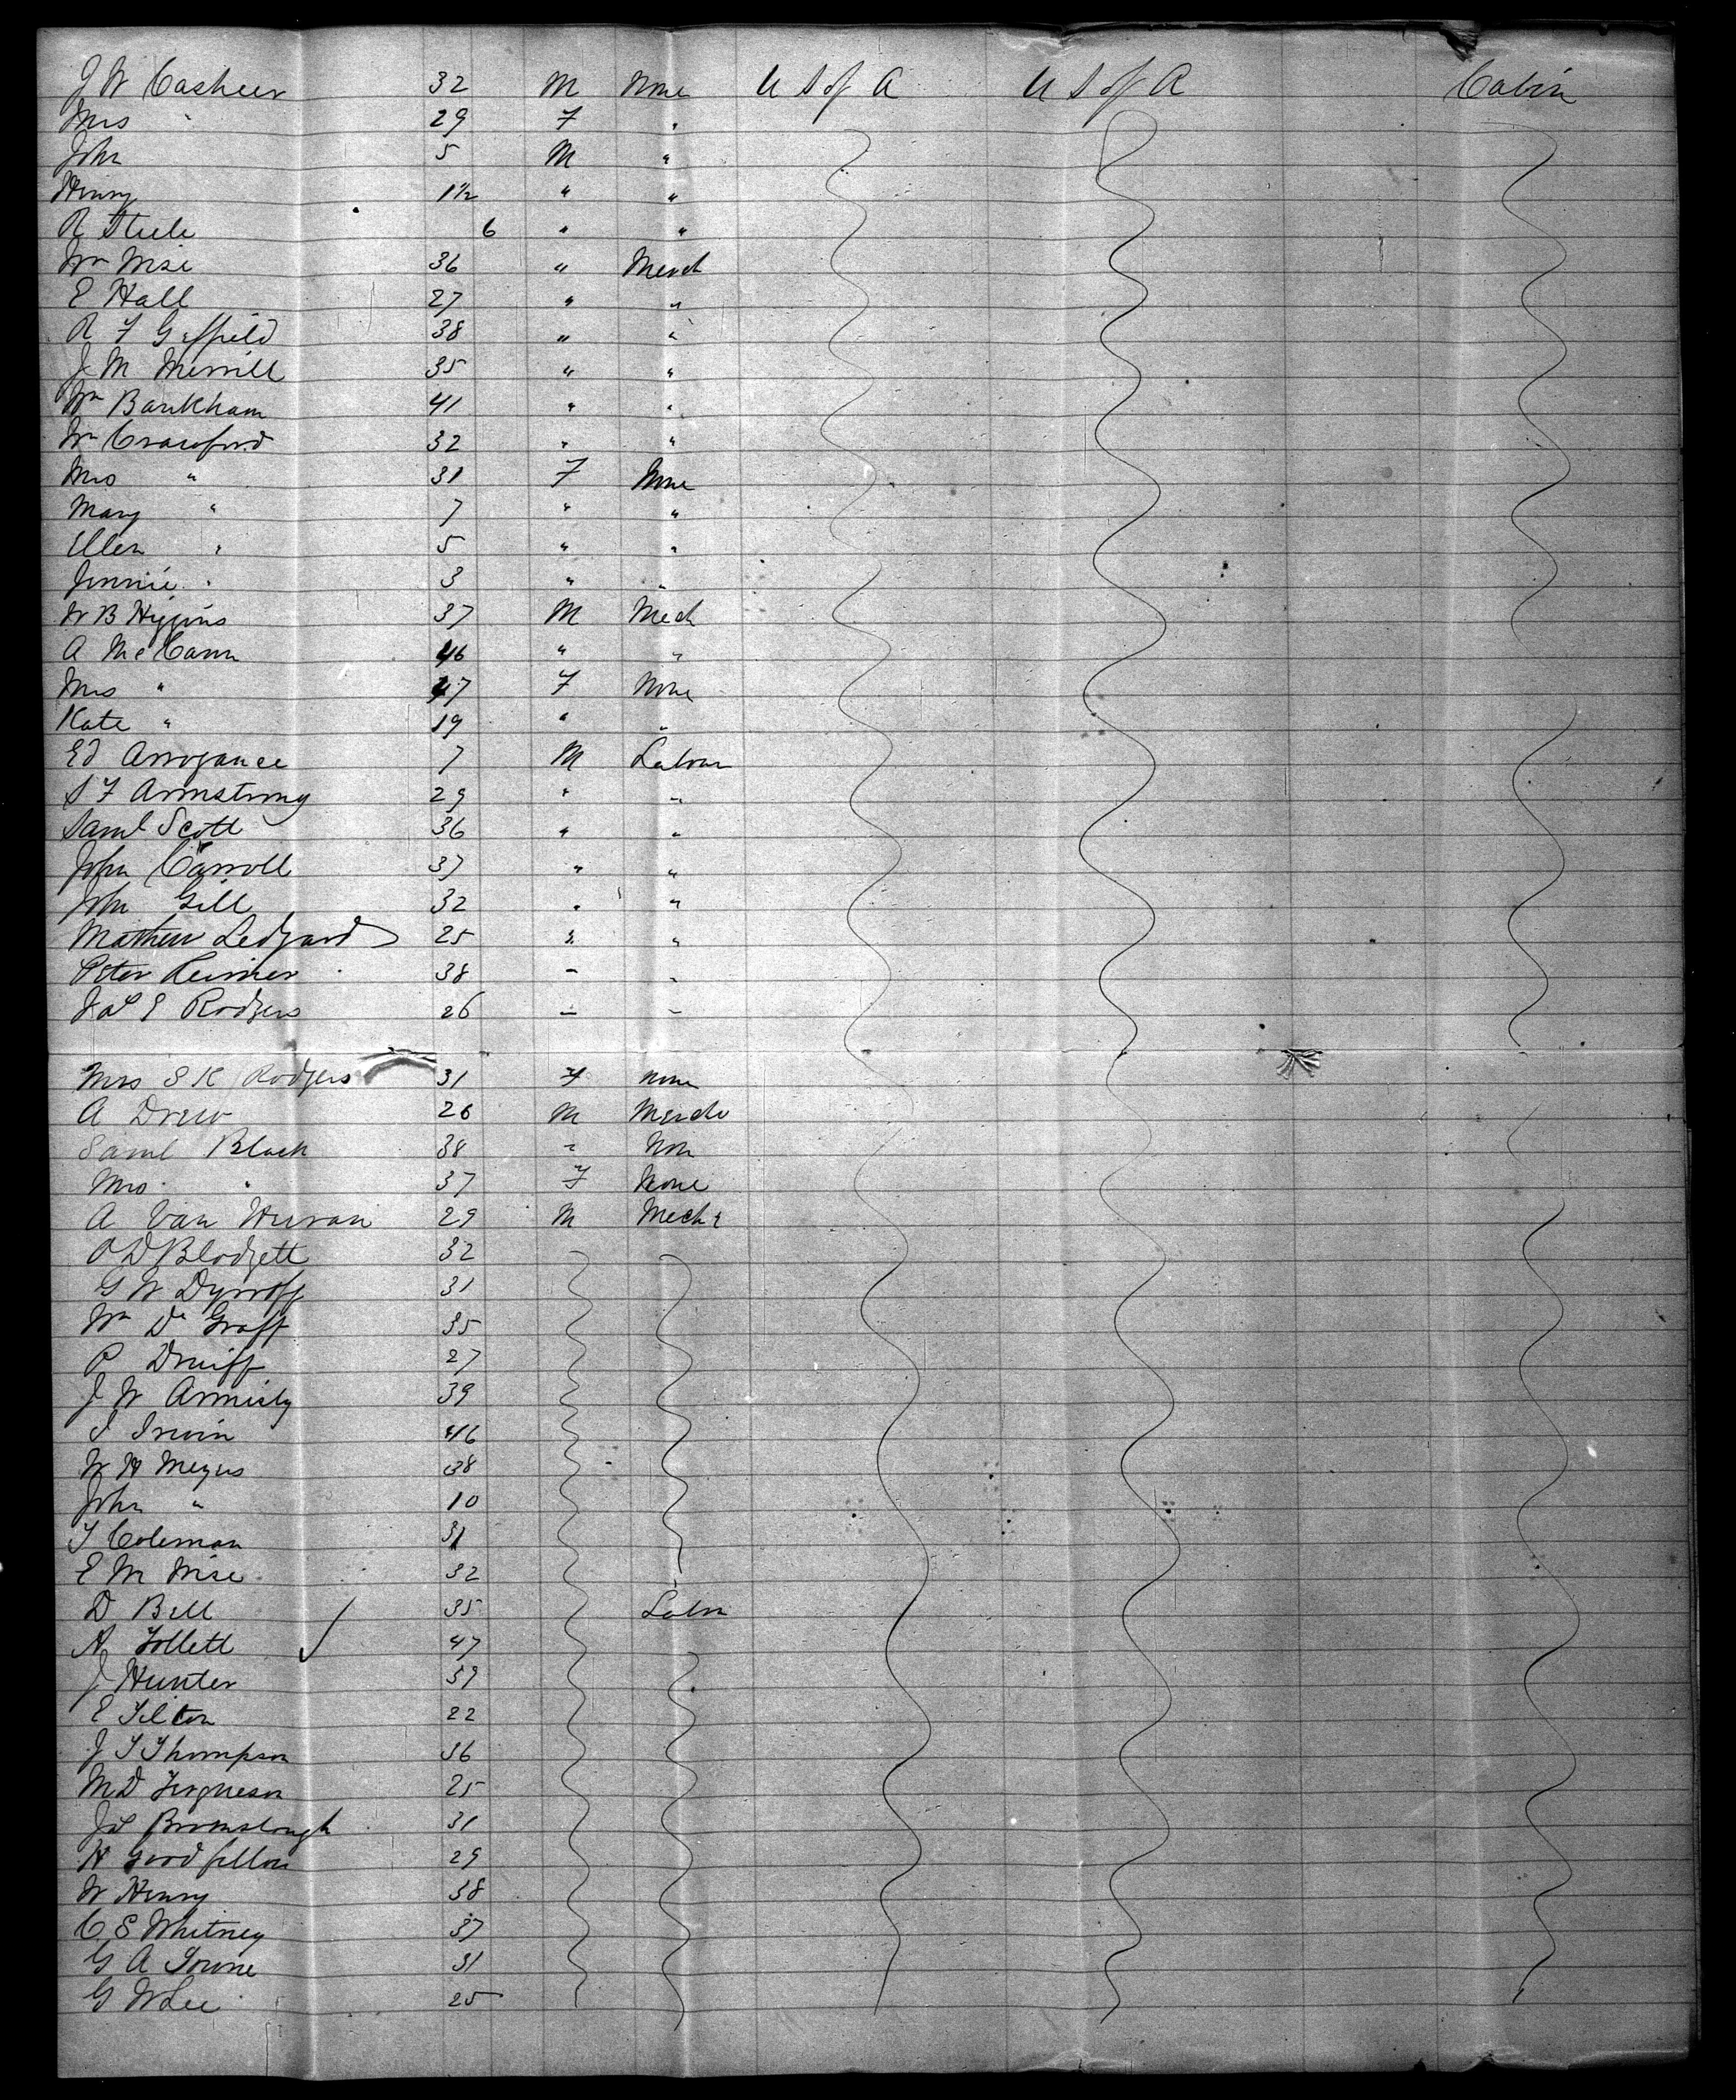 J W Casheer 32 M None U S of A U S of A Cabin
Mrs " 29 F "
John 5 M "
Henry 1½ " "
R Steele 6 " "
Wm Wise 36 " Merch
E Hall 27 " "
R F Geffield 38 " "
J M Merrill 35 " "
Wm Barkham 41 " "
Wm Crawford 32 " "
Mrs " 31 F None
Mary " 7 " "
Ellen " 5 " "
Jennie " 3 " "
W B Higgins 37 M Mech
A McCann 46 " "
Mrs " 47 F None
Kate " 19 " "
Ed Arrogance 7 M Labour
S F Armstrong 29 " "
Saml Scott 36 " "
John Carroll 37 " "
John Gill 32 " "
Mathew Ledyard 25 " "
Peter Reimer 38 " "
Jas E Rodgers 26 " "
Mrs S K Rodgers 31 F None
A Drew 26 M Merch
Saml Black 38 " Non
Mrs " 37 F None
A Van Huran 29 M Mech
O D Blodgett 32
G W Dyroff 31
Wm De Graff 35
P Druiff 27
J W Armisty 39
J Irwin 46
W H Meyers 38
John " 10
T Coleman 31
E M Wise 32
D Bell 35 Labr
A Follett 47
J Hunter 39
E Tilton 22
J T Thompson 36
M D Fergueson 25
Jas Bromslough 31
H Goodfellow 29
W Henry 38
C S Whitney 37
G A Towne 31
G W Lee 25